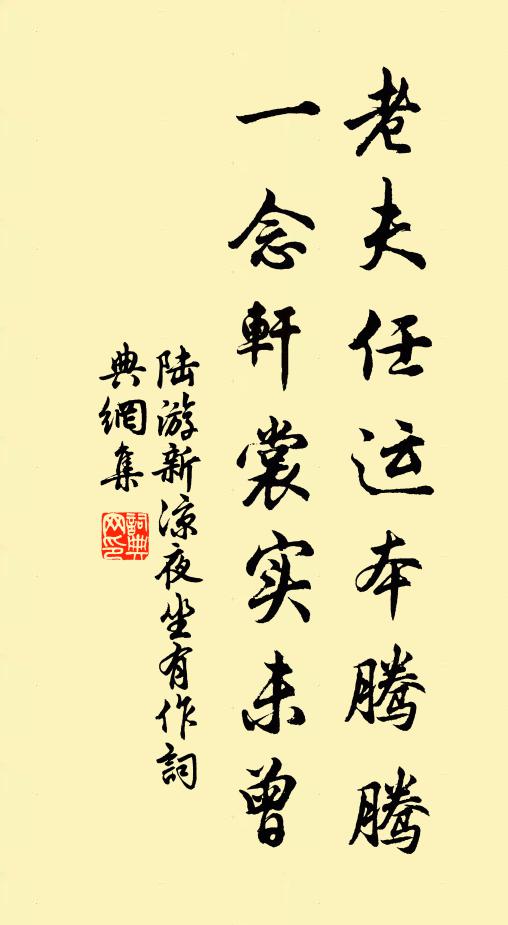 老夫任运本腾腾
一念軒裳实未曾
陆游新凉夜坐有作詞
典網集
詞典
网印